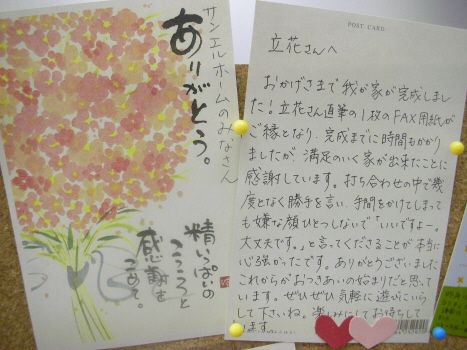 サンエルホームのみなさん
ありがとう。
精いっぱいの
こころと
感謝を
こめて。
POST CARD
立花さんへ
おかげさまで我が家が完成しまし
た！立花さん直筆の1枚のFAX用紙が
ご縁となり、完成までに時間もかかり
ましたが、満足のいく家が出来たことに
感謝しています。打ち合わせの中で幾
度となく勝手を言い、手間をかけてしまって
も嫌な顔ひとつしないで"いいですよー。
大丈夫です。"と言ってくださることが本当に
心強かったです。ありがとうございました
これからがおつきあいの始まりだと思って
います。ぜひぜひ気軽に遊びにいら
して下さいね。楽しみにしてお待ちして
ます